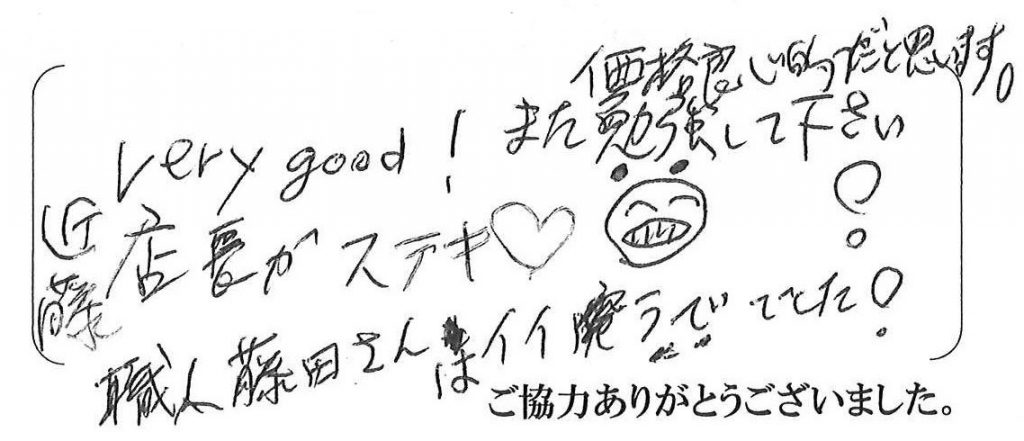 価格良い的だと思います。
very good! また勉強して下さい
近藤店長がステキ♡
職人藤田さんはイイ
ご協力ありがとうございました。